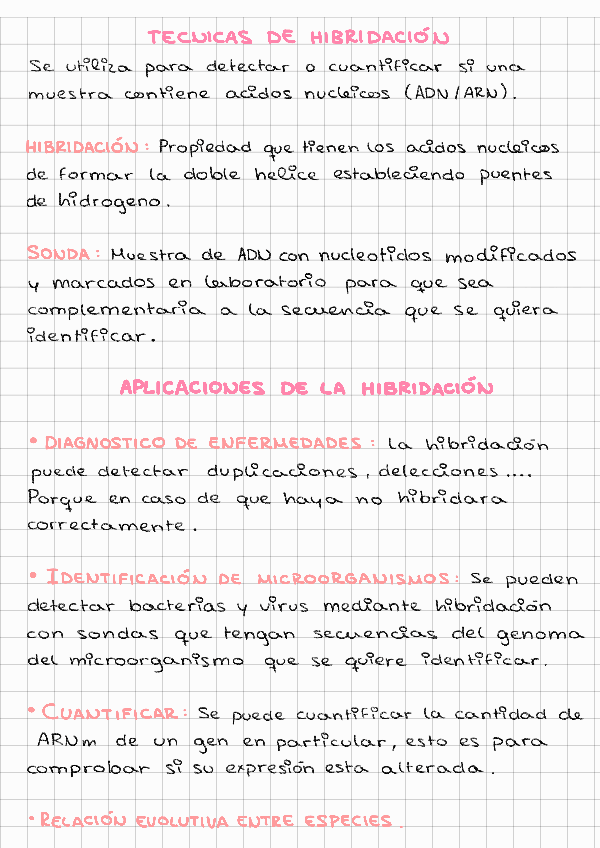 TECNICAS DE HIBRIDACIÓN
Se utiliza para detectar o cuantificar si una
muestra contiene acidos nucleicos (ADN/ARN).
HIBRIDACIÓN: Propiedad que tienen los acidos nucleicos
de formar la doble helice estableciendo puentes
de hidrogeno.
SONDA: Muestra de ADN con nucleotidos modificados
y marcados en laboratorio para que sea
complementaria a la secuencia que se quiera
identificar.
APLICACIONES DE LA HIBRIDACIÓN
• DIAGNOSTICO DE ENFERMEDADES: La hibridación
puede detectar duplicaciones, delecciones....
Porque en caso de que haya no hibridara
correctamente.
• IDENTIFICACIÓN DE MICROORGANISMOS: Se pueden
detectar bacterias y virus mediante hibridación
con sondas que tengan secuencias del genoma
del microorganismo que se quiere identificar.
• CUANTIFICAR: Se puede cuantificar la cantidad de
ARNm de un gen en particular, esto es para
comprobar si su expresión esta alterada.
• RELACIÓN EVOLUTIVA ENTRE ESPECIES.